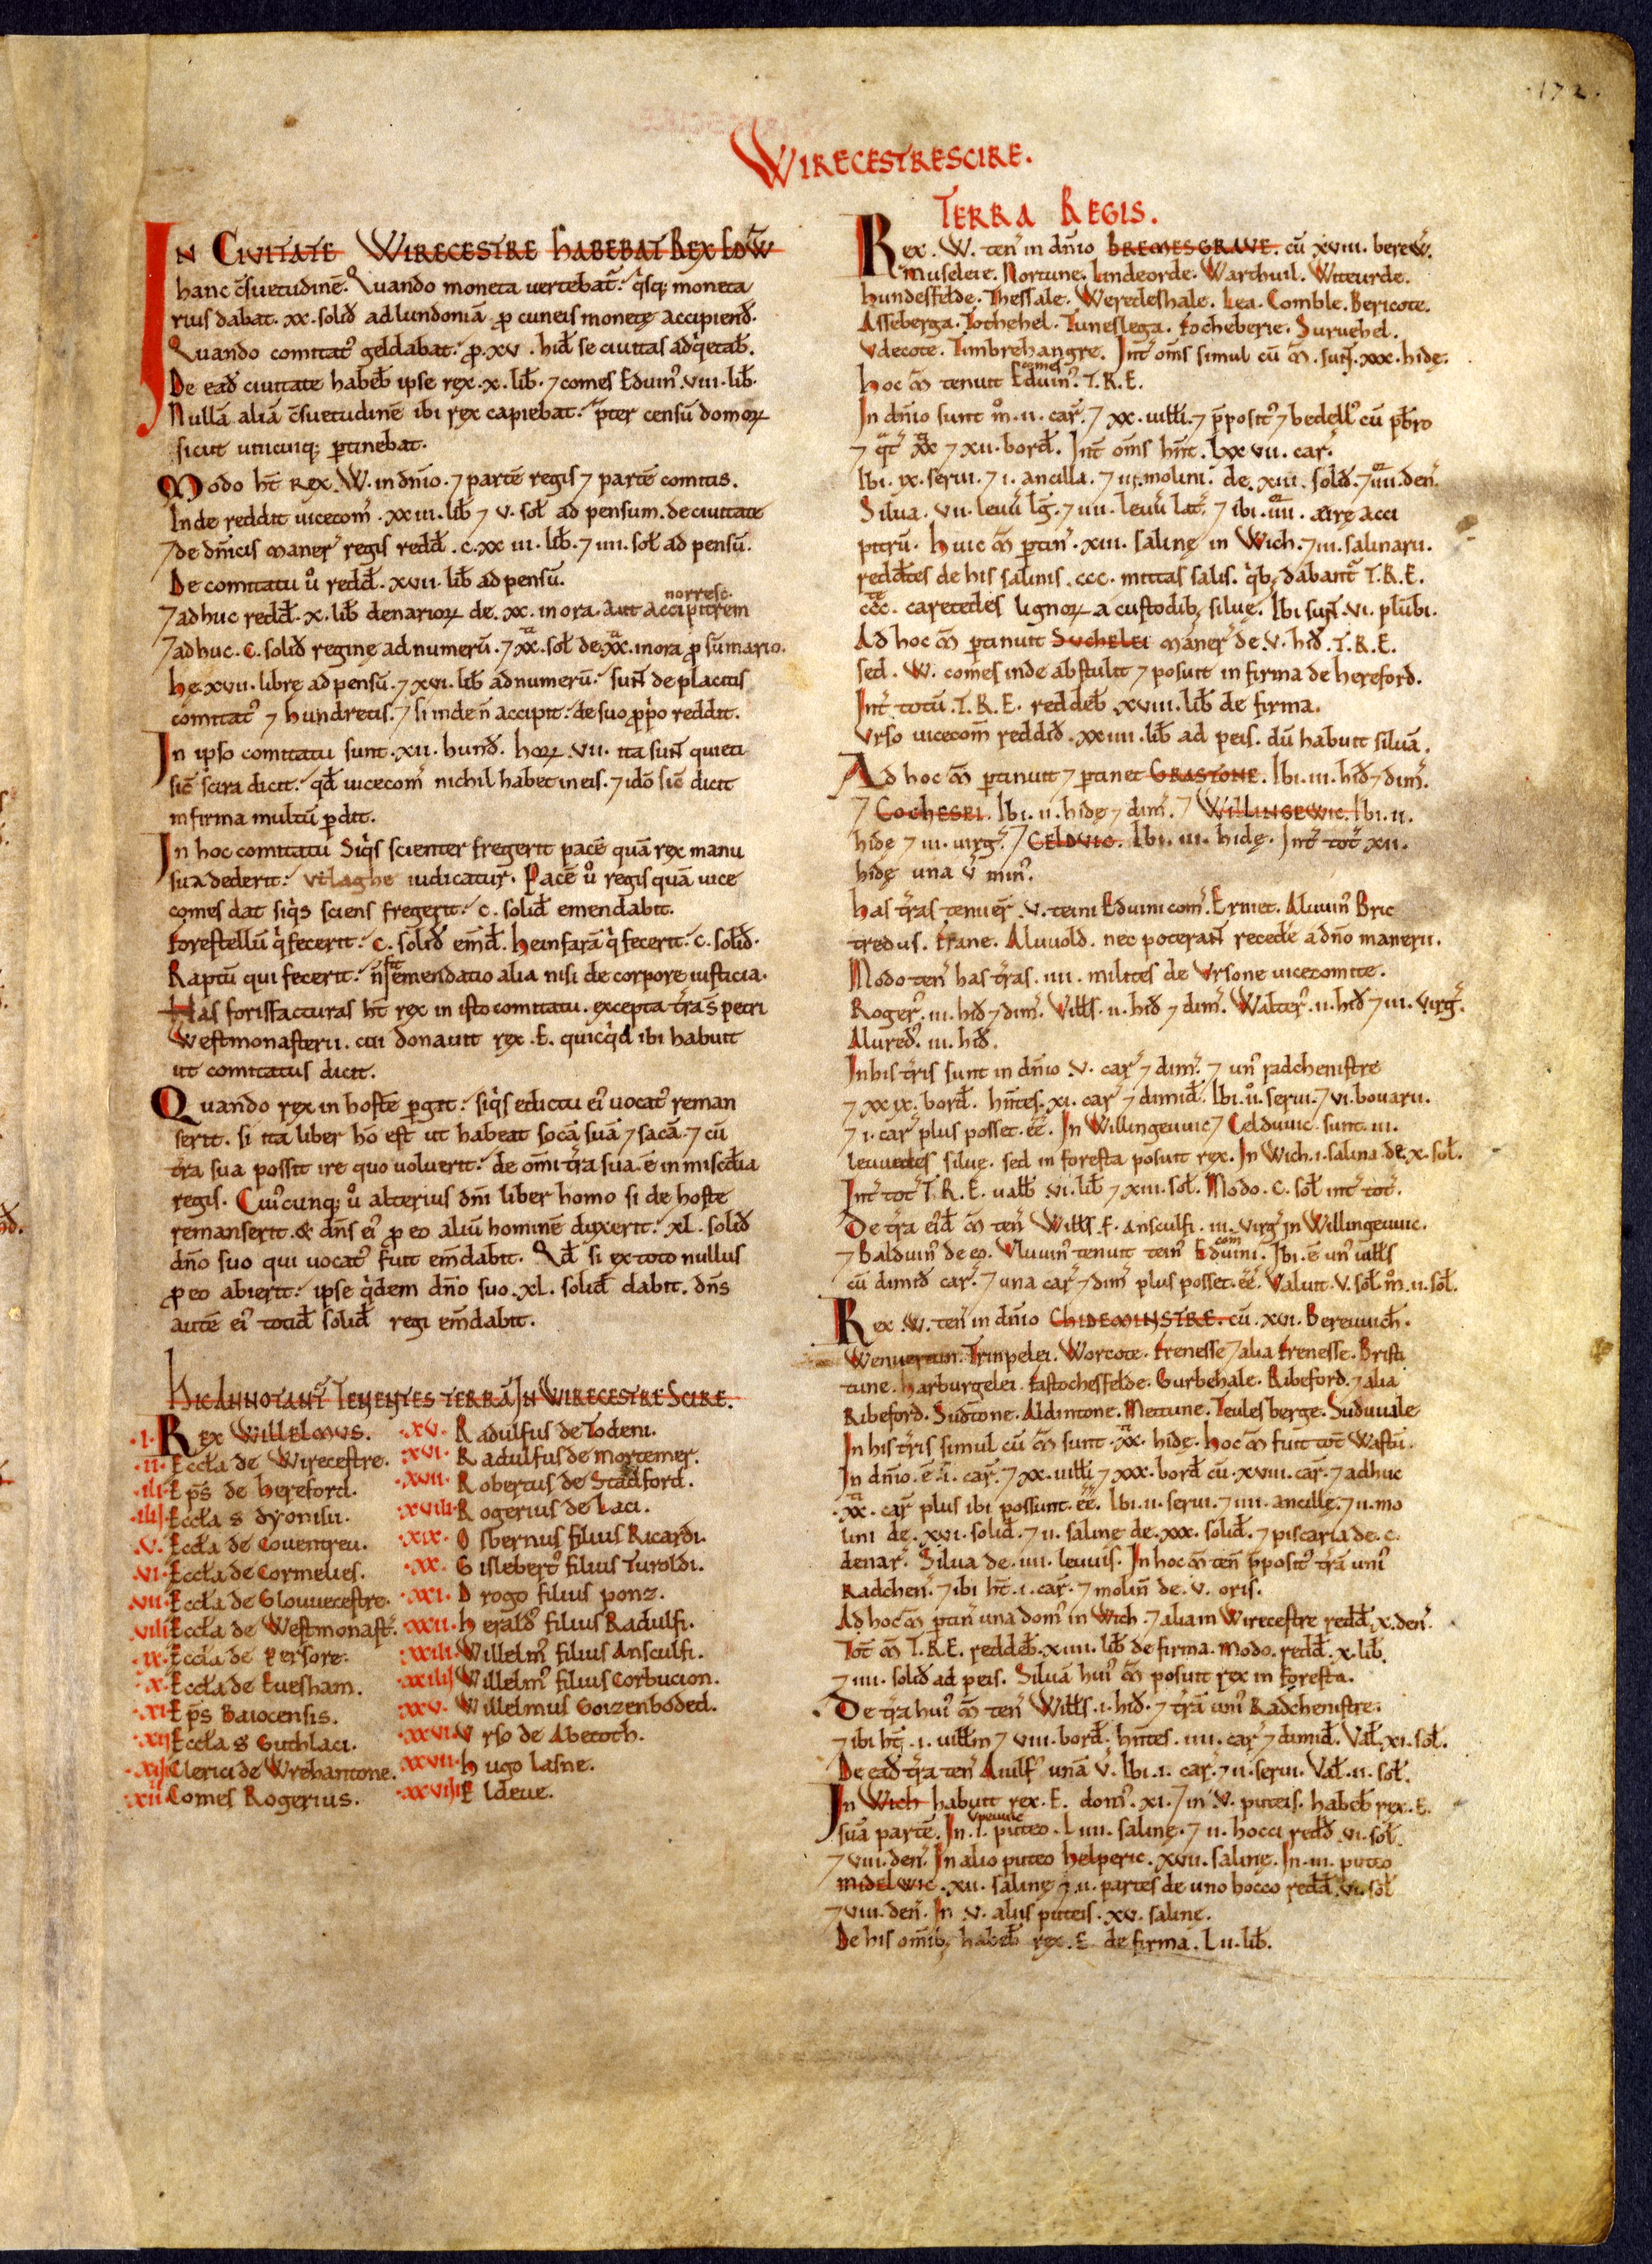 172.
WIRECESTRESCIRE.
IN CIVITATE WIRECESTRE HABEBAT REX EDW̃
hanc c̃suetudinē. Quando moneta uertebat̃. q̇sq; moneta
rius dabat .xx. solid̃ ad lundoniā p cuneis monetę accipiend̃.
Quando comitat᷒ geldabat. p .xv. hid̃ se ciuitas adq̇etab̃.
De ead̃ ciuitate habeb̃ ipse rex .x. lib̃. ⁊ comes Eduin᷒ .viii. lib̃.
Nullā aliā c̃suetudinē ibi rex capiebat. p̃ter censū domoꝝ
sicut unicuiq; ptinebat.
Modo ht̃ rex .W. in dñio. ⁊ partē regis ⁊ partē comitis.
Inde reddit uicecom̃ .xxiii. lib̃ ⁊ v. sol̃ ad pensum. de ciuitate
⁊ de dñicis maner̃ regis redd̃ .c.xxiii. lib̃. ⁊ iiii. sol̃ ad pensū.
De comitatu u̾ redd̃ .xvii. lib̃ ad pensū.
⁊ adhuc redd̃ .x. lib̃ denarioꝝ de .xx. in ora. Aut accipitrem norresc̃.
⁊ adhuc .c. solid̃ reginę ad numerū. ⁊ xx. sol̃ de .xx. in ora p sūmario.
he .xvii. librę ad pensū. ⁊ xvi. lib̃ ad numerū. sunt̃ de placitis
comitat᷒ ⁊ hundretis. ⁊ si inde ñ accipit. de suo pp̃o reddit.
In ipso comitatu sunt .xii. hund̃. hoꝝ .vii. ita sunt̃ quieti
sic̃ scira dicit. qd̃ uicecom̃ nichil habet in eis. ⁊ idõ sic̃ dicit
in firma multū pdit.
In hoc comitatu siq̇s scienter fregerit pacē quā rex manu
sua dederit. Vtlaghe iudicatur̃. Pacē u̾ regis quā uice
comes dat siq̇s sciens fregerit. c. solid̃ emendabit.
Forestellū q̇ fecerit. c. solid̃ em̃d̃. heinfarā q̇ fecerit. c. solid̃.
Raptū qui fecerit. ñ sit emendatio alia nisi de corpore iusticia.
Has forisfacturas ht̃ rex in isto comitatu. excepta tr̃a S petri
Westmonasterii. cui donauit rex .E. quicq̇d ibi habuit
ut comitatus dicit.
Quando rex in hostē pgit. siq̇s edictu ei᷒ uocat᷒ reman
serit. si ita liber hō est ut habeat socā suā ⁊ sacā. ⁊ cū
tr̃a sua possit ire quo uoluerit. de om̃i tr̃a sua. ē in misc̃dia
regis. Cui᷒cunq; u̾ alterius dñi liber homo si de hoste
remanserit. & dñs ei᷒ p eo aliū hominē duxerit. xl. solid̃
dño suo qui uocat᷒ fuit em̃dabit. Qd̃ si ex toto nullus
p eo abierit. ipse q̇dem dño suo .xl. solid̃ dabit. dñs
autē ei᷒ totid̃ solid̃ regi em̃dabit.
HIC ANNOTANT̃ TENENTES TERRĀ IN WIRECESTRE SCIRE.
.I. Rex WILLELMVS.
.II. Eccl̃a de Wirecestre.
.III. Ep̃s de hereford.
.IIIJ. Eccl̃a S dyonisii.
.V. Eccl̃a de Couentreu.
.VI. Eccl̃a de Cormelies.
.VII. Eccl̃a de Glouuecestre.
.VIII. Eccl̃a de Westmonast̃.
.IX. Eccl̃a de Persore.
.X. Eccl̃a de Euesham.
.XI. Ep̃s Baiocensis.
.XIJ. Eccl̃a S Guthlaci.
.XIIJ. Clerici de Wrehantone.
.XII Comes Rogerius.
.XV. Radulfus de Todeni.
.XVI. Radulfus de mortemer.
.XVII. Robertus de Stadford.
.XVIII. Rogerius de Laci.
.XIX. Osbernus filius Ricardi.
.XX. Gislebert᷒ filius Turoldi.
.XXI. Drogo filius ponz.
.XXII. herald᷒ filius Radulfi.
.XXIII. Willelm᷒ filius Ansculfi.
.XXIIIJ. Willelm᷒ filius Corbucion.
.XXV. Willelmus Goizenboded.
.XXVI. Vrso de Abetoth.
.XXVII. hugo Lasne.
.XXVIII. Eldeue.
TERRA REGIS.
Rex .W. ten̾ in dñio BREMESGRAVE. cū xviii. berew̃.
Museleie. Nortune. Lindeorde. Warthuil. Witeurde.
hundesfelde. Thessale. Weredeshale. Lea. Comble. Bericote.
Asseberga. Tothehel. Tuneslega. Focheberie. Suruehel.
Vdecote. Timbrehangre. Int̃ om̃s simul cū m̃. sunt̃ .xxx. hidę.
hoc m̃ tenuit Eduin᷒ comes. T.R.E.
In dñio sunt m̊ .ii. car̃. ⁊ xx. uilt̃i. ⁊ p̃posit᷒ ⁊ bedell᷒ cū pb̃ro
⁊ qt̃ xx ⁊ xii. bord̃. Int̃ om̃s hñt .lxxvii. car̃.
Ibi .ix. serui. ⁊ i. ancilla. ⁊ iii. molini. de .xiii. solid̃. ⁊ iiii. den̾.
Silua .vii. leuu̾ lg̃. ⁊ iiii. leuu̾ lat̃. ⁊ ibi .iiii. airę acci
pitrū. Huic m̃ ptin̾ .xiii. salinę in Wich. ⁊ iii. salinarii.
reddt̃es de his salinis .ccc. mittas salis. q̇b; dabant᷒ T.R.E.
ccc. caretedes lignoꝝ a custodib; siluę. Ibi sunt̃ .vi. plūbi.
Ad hoc m̃ ptinuit SVCHELEI maner̾ de .v. hid̃ .T.R.E.
sed .W. comes inde abstulit ⁊ posuit in firma de hereford.
Int̃ totū .T.R.E. reddeb̃ .xviii. lib̃ de firma.
Vrso uicecom̃ reddid̃ .xxiiii. lib̃ ad peis. dū habuit siluā.
Ad hoc m̃ ptinuit ⁊ ptinet GRASTONE. Ibi .iii. hid̃ ⁊ dim̃.
⁊ COCHESEI. Ibi .ii. hidę ⁊ dim̃. ⁊ WILLINGEWIC. Ibi .ii.
hidę ⁊ iii. uirg̃. ⁊ CELDVIC. Ibi .iii. hidę. Int̃ tot̃ xii.
hidę una v̾ min᷒.
has tr̃as tenuer̃ .v. teini Eduini com̃. Ernet. Aluuin᷒ Bric
tredus. Frane. Aluuold. nec poteran̄t recede̾ a dño manerii.
Modo ten̾ has tr̃as .iiii. milites de Vrsone uicecomite.
Roger᷒ .iii. hid̃ ⁊ dim̃. Wilt̃s .ii. hid̃ ⁊ dim̃. Walter᷒ .ii. hid̃ ⁊ iii. uirg̃.
Alured᷒ .iii. hid̃.
In his tr̃is sunt in dñio .v. car̃ ⁊ dim̃. ⁊ un᷒ radchenistre
⁊ xxix. bord̃. hñtes .xi. car̃ ⁊ dimid̃. Ibi .ii̾. serui. ⁊ vi. bouarii.
⁊ i. car̃ plus posset .ee̾. In Willingeuuic ⁊ Celduuic sunt .iii.
leuuedes siluę. sed in foresta posuit rex. In Wich .i. salina de .x. sol̃.
Int̃ tot̃ T.R.E. ualb̃ .vi. lib̃ ⁊ xiii. sol̃. Modo .c. sol̃ int̃ tot̃.
De tr̃a ei᷒d̃ m̃ ten̾ Wilt̃s .f. ansculfi .iii. uirg̾ in Willingeuuic.
⁊ Balduin᷒ de eo. Vluuin᷒ tenuit tein᷒ Eduini com̃. Ibi .ē un᷒ uilt̃s
cū dimid̃ car̃. ⁊ una car̃ ⁊ dim̃ plus posset .ee̾. Valuit .v. sol̃. m̊. ii. sol̃.
Rex .W. ten̾ in dñio CHIDEMINSTRE. cū .xvi. Bereuuich̃.
Wenuertun. Trinpelei. Worcote. Frenesse ⁊ alia Frenesse. Bristi
tune. harburgelei. Fastochesfelde. Gurbehale. Ribeford. ⁊ alia
Ribeford. Sudtone. Aldintone. Mettune. Teulesberge. Suduuale
In his tr̃is simul cū m̃ sunt .xx. hidę. hoc m̃ fuit tot̃ Wastū.
In dñio .ē .i. car̃. ⁊ xx. uilt̃i ⁊ xxx. bord̃ cū .xviii. car̃. ⁊ adhuc
.xx. car̃ plus ibi possunt .ee̾. Ibi .ii. serui. ⁊ iiii. ancillę. ⁊ ii. mo
lini de .xvi. solid̃. ⁊ ii. salinę de .xxx. solid̃. ⁊ piscaria de .c.
denar̃. Silua de .iiii. leuuis. In hoc m̃ ten̾ p̃posit᷒ tr̃ā uni᷒
Radchen̾. ⁊ ibi ht̃ .i. car̃. ⁊ molin̾ de .v. oris.
Ad hoc m̃ ptin̾ una dom᷒ in Wich. ⁊ alia in Wirecestre redd̃ .x. den̾.
Tot̃ m̃ T.R.E. reddeb̃ .xiiii. lib̃ de firma. Modo redd̃ .x. lib̃.
⁊ iiii. solid̃ ad peis. Siluā hui᷒ m̃ posuit rex in Foresta.
De tr̃a hui᷒ m̃ ten̾ Wilt̃s .i. hid̃. ⁊ tr̃ā uni᷒ Radchenistre.
⁊ ibi ht̃ .i. uilt̃m ⁊ viii. bord̃. hñtes .iiii. car̃ ⁊ dimid̃. Val̃ .xi. sol̃.
De ead̃ tr̃a ten̾ Aiulf᷒ unā v̾. Ibi .i. car̃. ⁊ ii. serui. Val̃ .ii. sol̃.
In Wich habuit rex .E. dom᷒ .xi. ⁊ in .v. puteis. habeb̃ rex .E.
suā partē. In .i. puteo Vpeuuic .liiii. salinę. ⁊ ii. hocci redd̃ .vi. sol̃.
⁊ viii. den̾. In alio puteo helperic .xvii. salinę. In .iii. puteo
midelwic .xii. salinę ⁊ ii. partes de uno hocco redd̃ .vi. sol̃
⁊ viii. den̾. In .v. aliis puteis .xv. salinę.
De his om̃ib; habeb̃ rex .E. de firma .lii. lib̃.